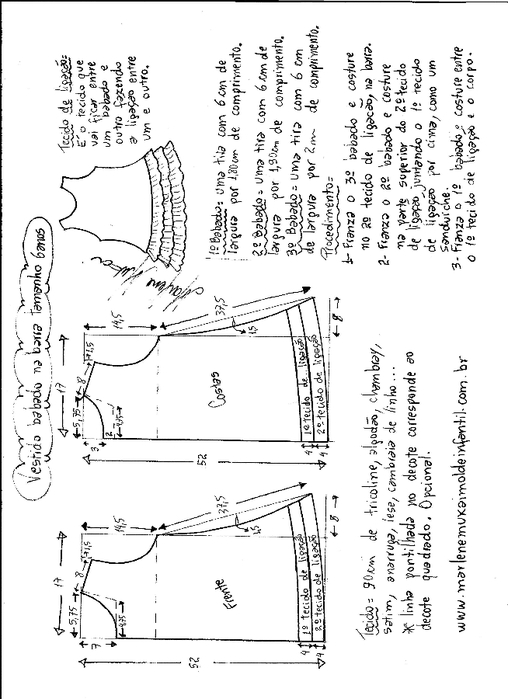 Vestido babado na barra tamanho 6anos
Tecido de ligação=
É o tecido que
vai ficar entre
um babado e
outro fazendo
a ligação entre
um e outro.
1º Babado= uma tira com 6 cm de
largura por 1,80cm de comprimento.
2º Babado= uma tira com 6 cm de
largura por 1,90cm de comprimento.
3º Babado= uma tira com 6 cm
de largura por 2m de comprimento.
Procedimento=
1- Franza o 3º babado e costure
no 2º tecido de ligação, na barra.
2- Franza o 2º babado e costure
na parte superior do 2º tecido
de ligação juntando o 1º tecido
de ligação por cima, como um
sanduiche.
3- Franza o 1º babado e costure entre
o 1º tecido de ligação e o corpo.
17
5,75
8
14,5
3
2
Costas
37,5
1,5
52
1º tecido de ligação
2º tecido de ligação
4
4
8
17
5,75
8
14,5
7
Frente
37,5
1,5
52
1º tecido de ligação
2º tecido de ligação
4
4
8
Tecido= 90cm de tricoline, algodão, chambray,
satim, anarruga, lese, cambraia de linho...
* linha pontilhada no decote corresponde ao
decote quadrado. Opcional.
www.marlenemukaimoldeinfantil.com.br